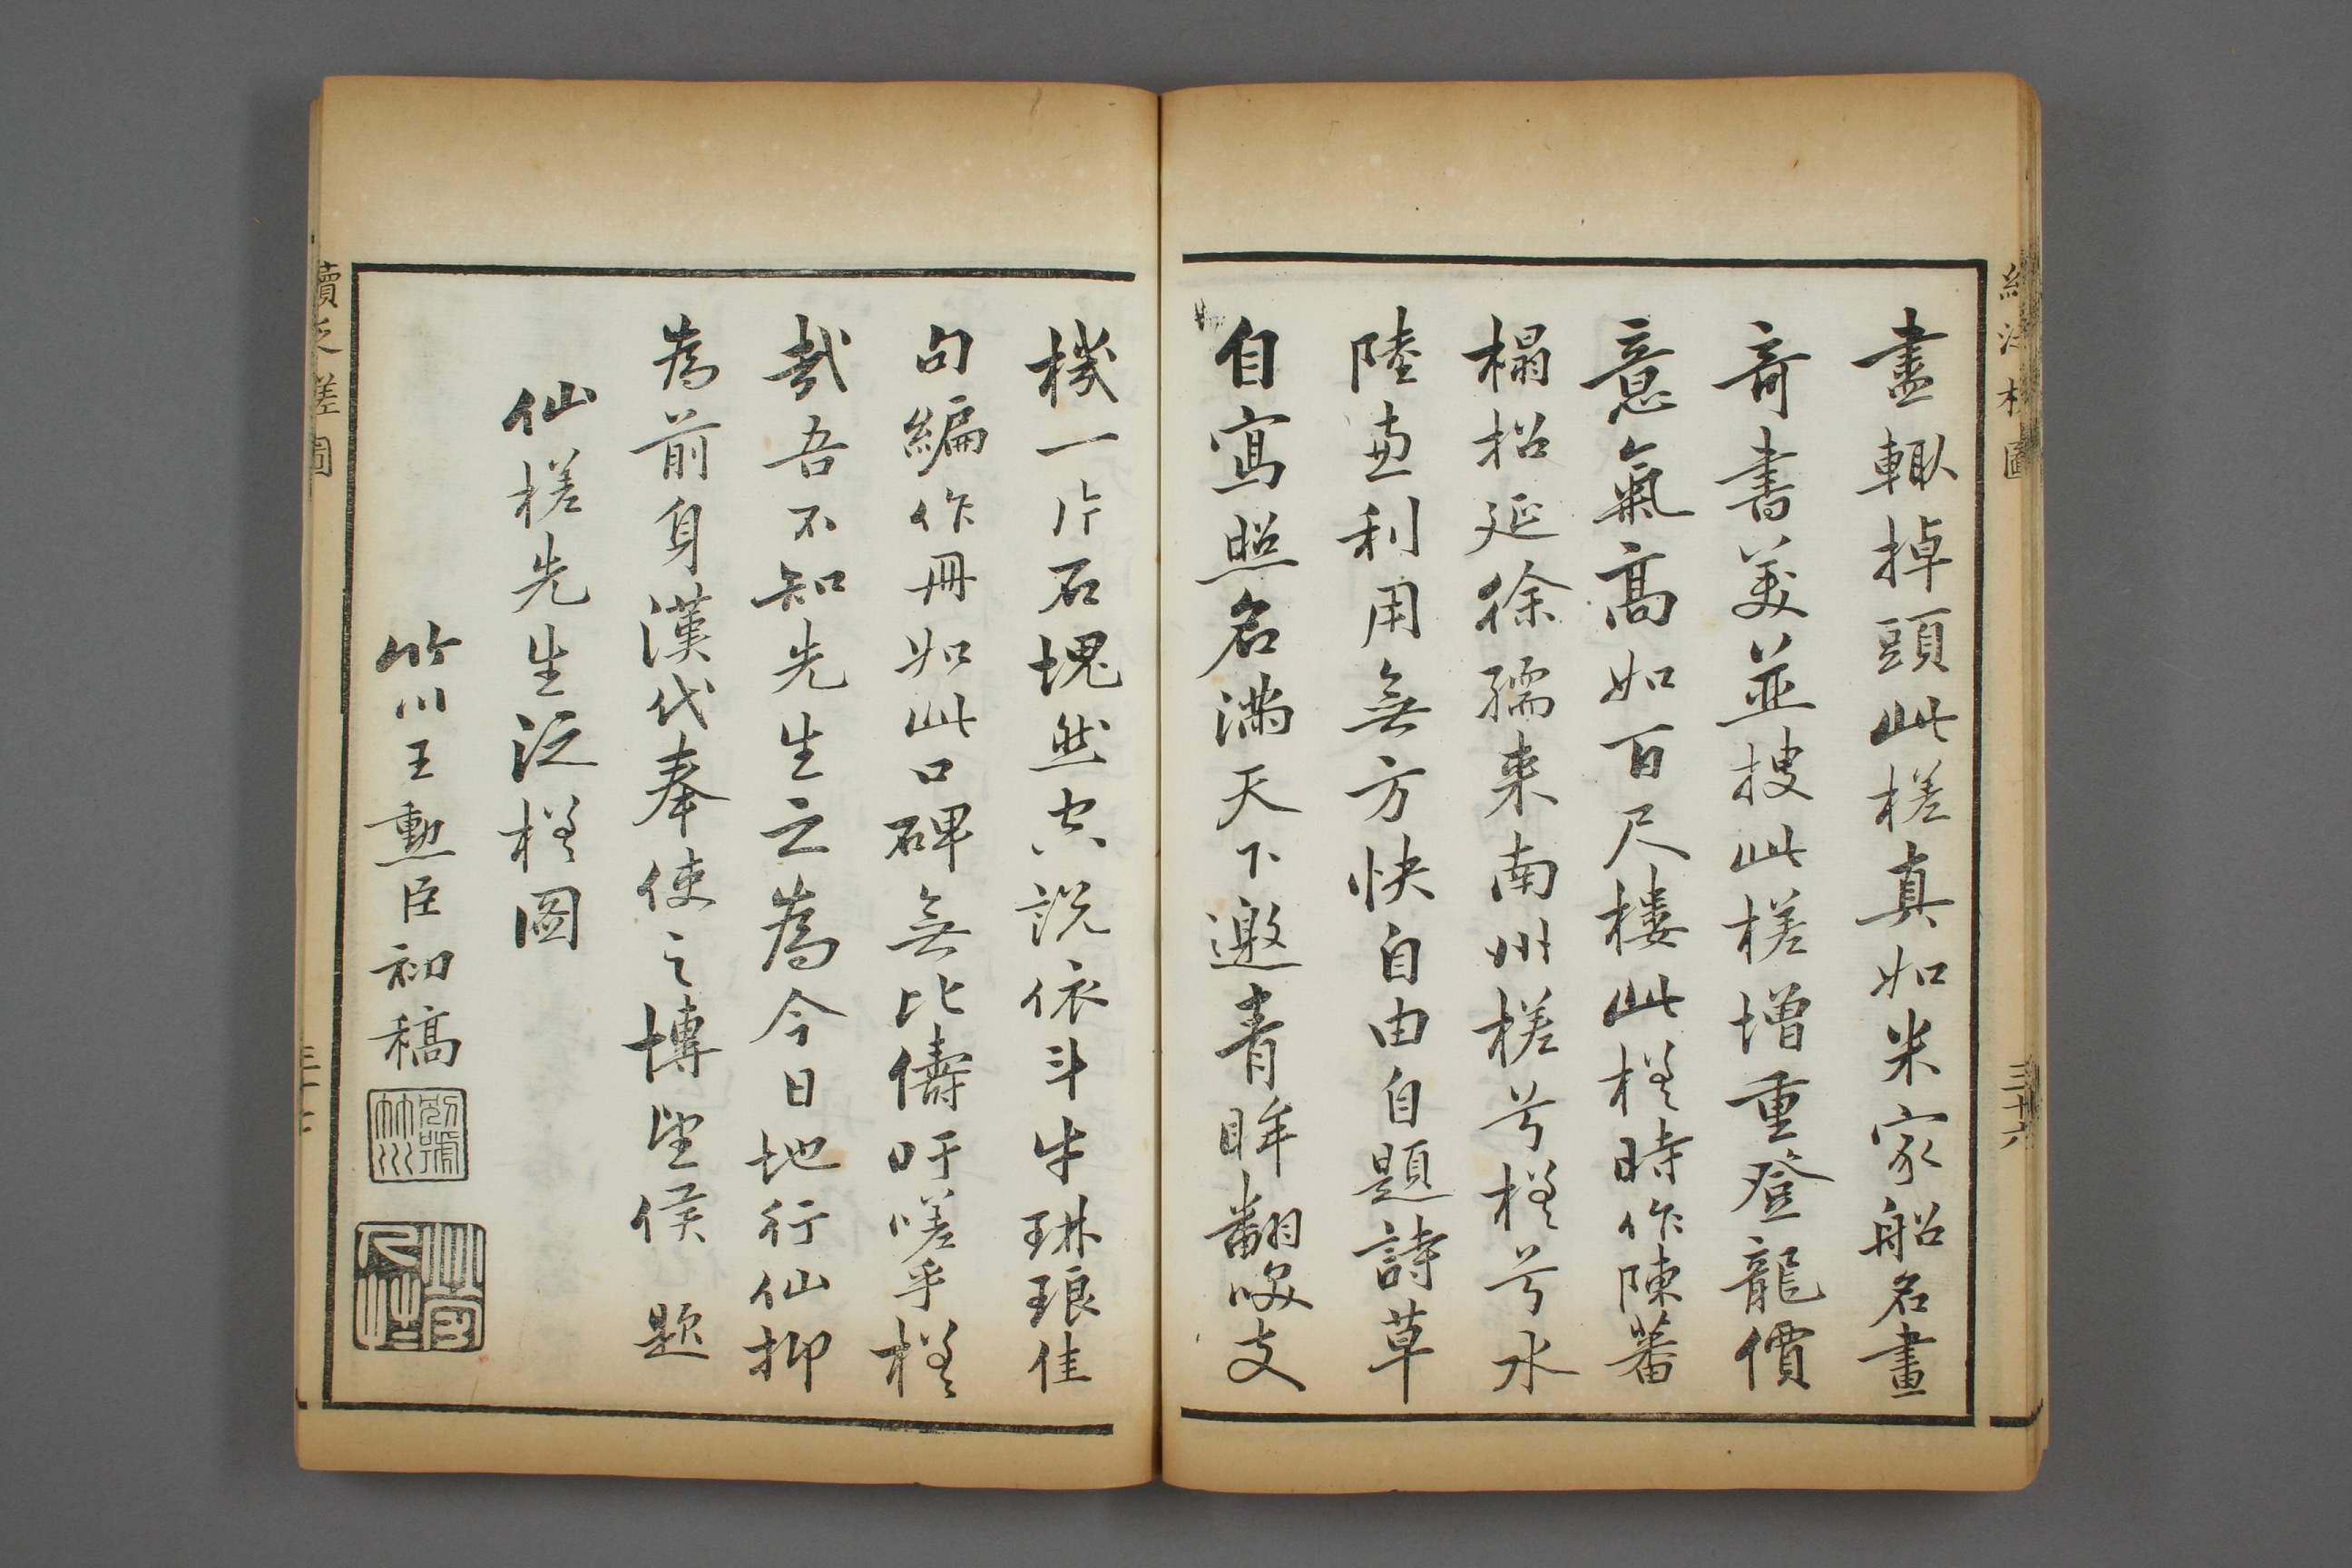 盡輙掉頭此槎真如米家船名畫
奇書美並搜此槎增重登龍價
意氣高如百尺樓此槎時作陳蕃
榻招延徐孺来南州槎兮槎兮水
陸兼利用無方快自由自題詩草
自寫照名滿天下邀青眸翻嗤支
機一片石塊然空說依斗牛琳琅佳
句編作冊如此口碑無比儔吁嗟乎槎
哉吾不知先生之為今日地行仙抑
為前身漢代奉使之博望侯 題
仙槎先生泛槎圖
竹川王勳臣初稿
別號竹川
續泛槎圖
三十六
續泛槎圖